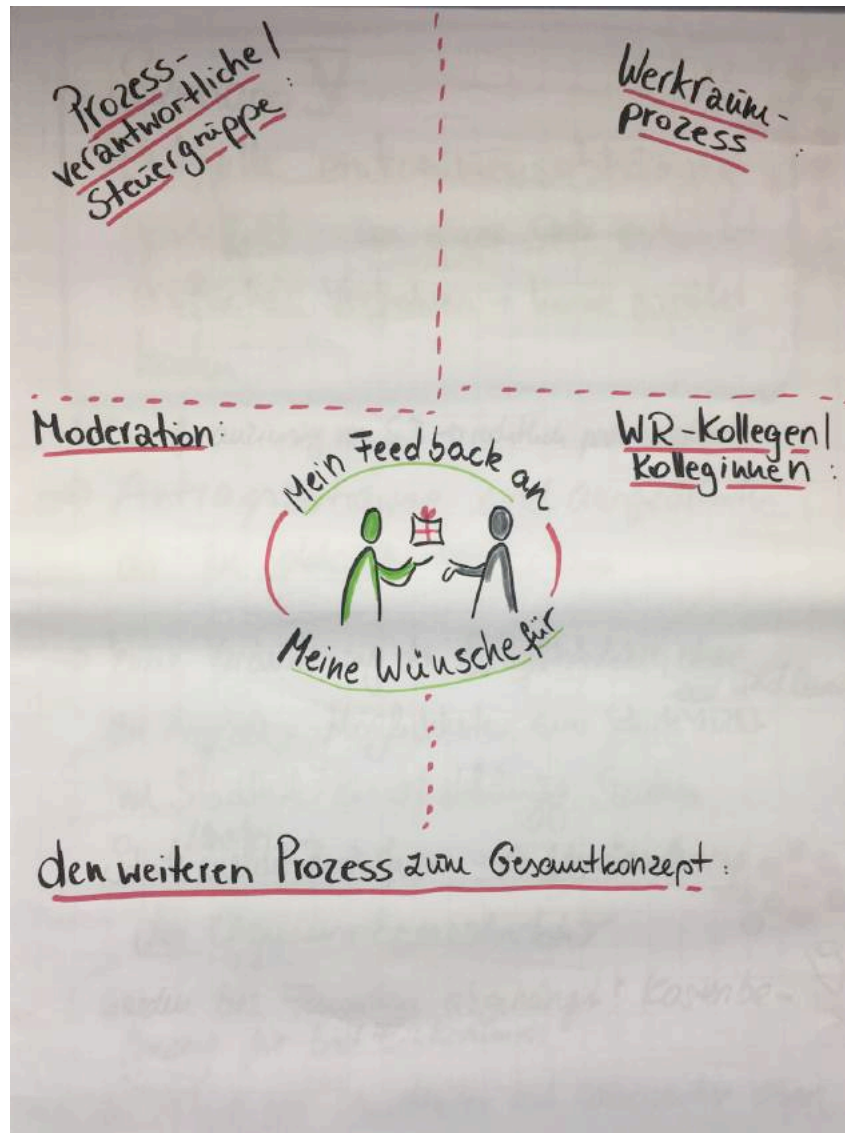 Prozess-
verantwortliche/
Steuergruppe:
Werkraum-
prozess:
Moderation:
WR-Kollegen/
Kolleginnen:
Mein Feedback an
Meine Wünsche für
den weiteren Prozess zum Gesamtkonzept: